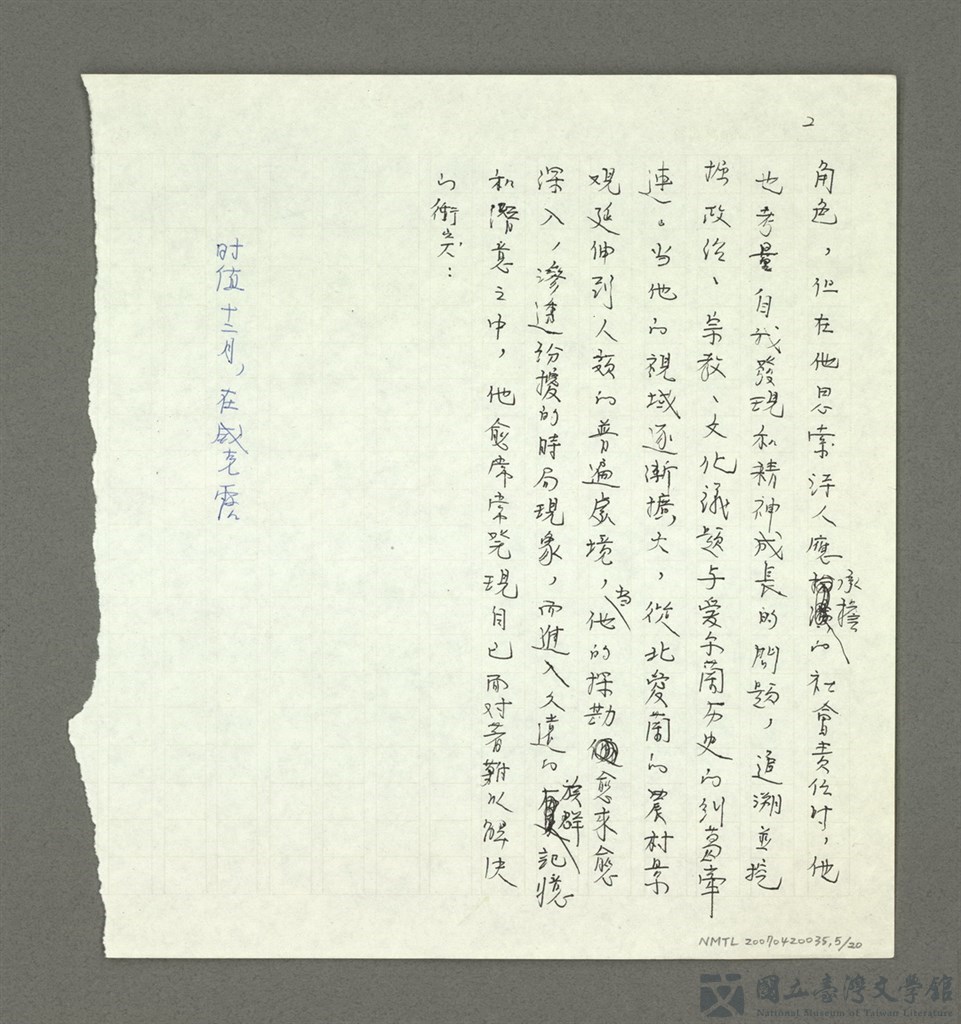 2
角色，但在他思索詩人應承擔的社會責任时，他
也考量自我發現和精神成長的問題，追溯並挖
掘政治、宗教、文化議題与爱尔蘭历史的糾葛牽
連。当他的視域逐漸擴大，從北愛蘭的農村景
观延伸到人類的普遍處境，当他的探勘愈來愈
深入，滲透紛擾的時局現象，而進入久遠的族群記憶
和潛意之中，他愈常常発現自己面对着難以解決
的衝突：
时值十二月，在威克露
NMTL 20070420035,5/20
國立臺灣文學館
National Museum of Taiwan Literature